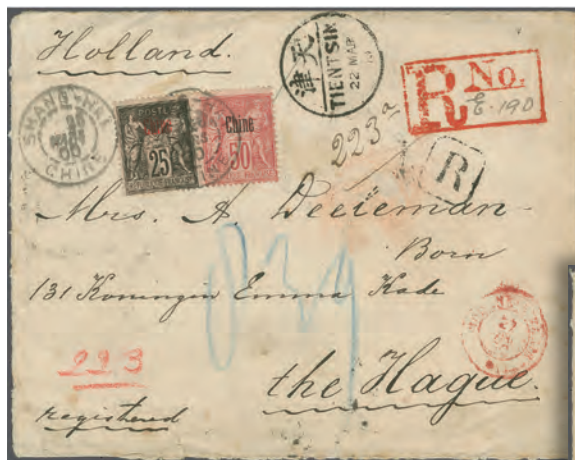 Holland.
天津
TIENTSIN
22 MAR
R No.
E. 190
SHANG-HAI
CHINE
POSTES
25
Chine
50
223a
R
Mrs. A
Born
131 Koningin Emma Kade
839
223
the Hague.
registered